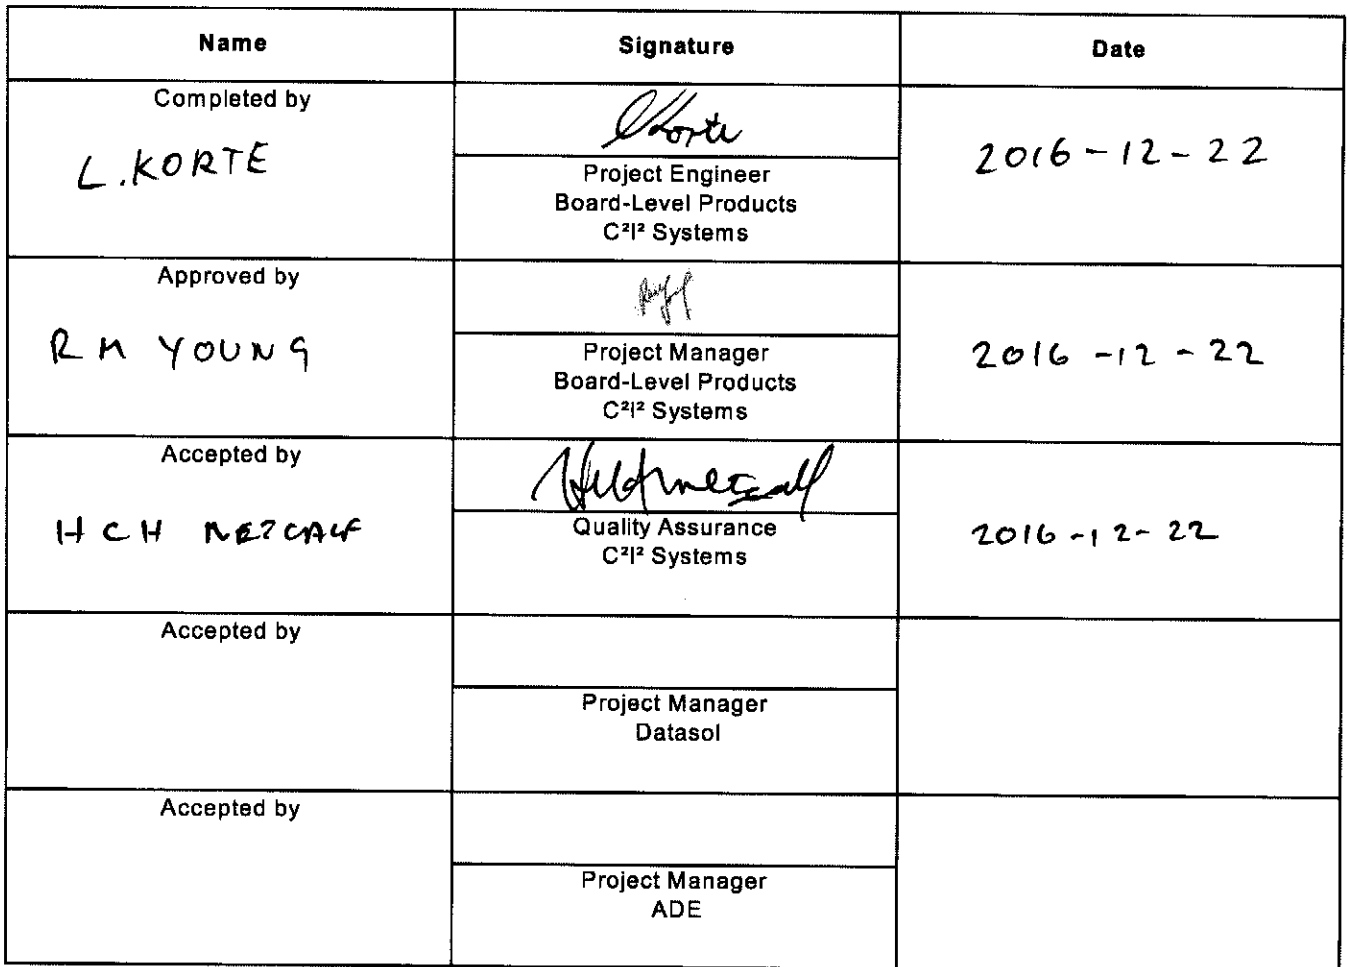 Name Signature Date
Completed by
L. KORTE
LKorte
2016-12-22
Project Engineer
Board-Level Products
C²I² Systems
Approved by
R M YOUNG
2016-12-22
Project Manager
Board-Level Products
C²I² Systems
Accepted by
H C H METCALF
2016-12-22
Quality Assurance
C²I² Systems
Accepted by
Project Manager
Datasol
Accepted by
Project Manager
ADE